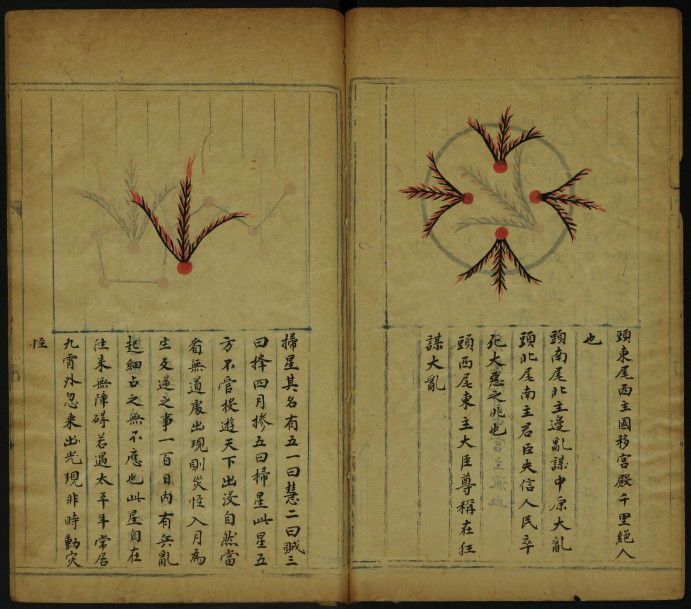 頭東尾西主國移宮殿千里絕人
也
頭南尾北主邊亂謀中原大亂
頭北尾南主君臣失信人民卒
死大惡之兆也
頭西尾東主大臣尊稱在狂
謀大亂
掃星其名有五一曰慧二曰賊三
曰拌四月摻五曰掃星此星五
方不管授遊天下出没自然當
看無道處出現則災怪入月為
生反逆之事一百日内有兵亂
起細占之無不應也此星自在
往来無障碍若遇太平年常居
九霄外忽来出光現非時動灾
怪